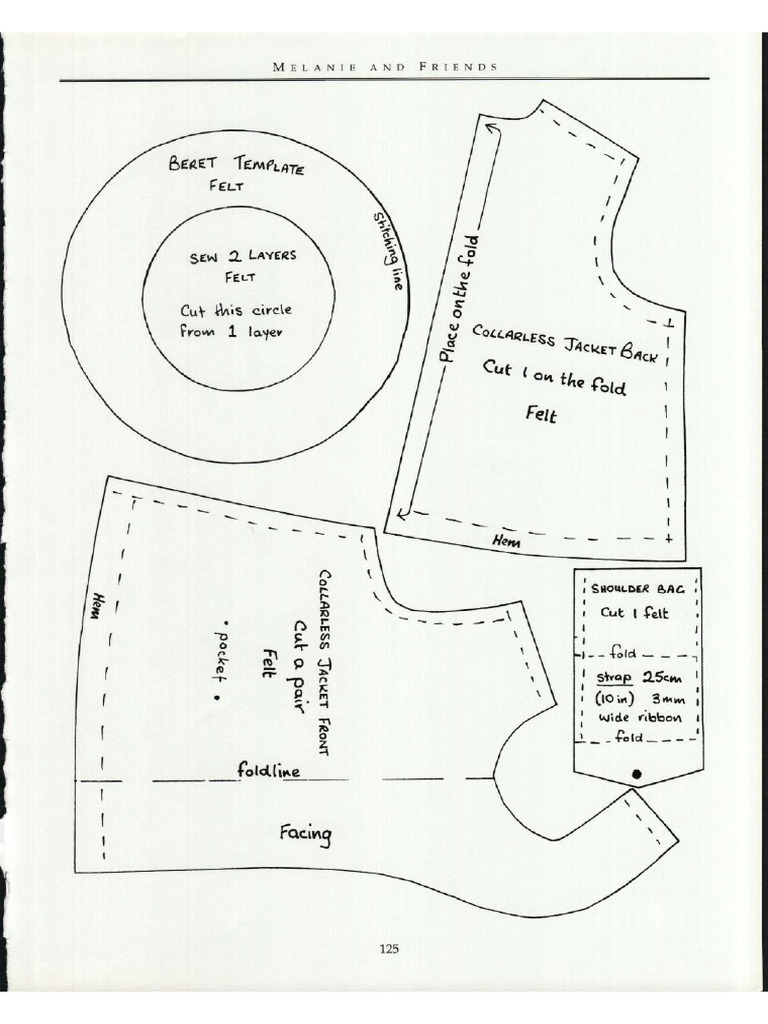 MELANIE AND FRIENDS
BERET TEMPLATE
FELT
Stitching line
SEW 2 LAYERS
FELT
Cut this circle
from 1 layer
Place on the fold
COLLARLESS JACKET BACK
Cut 1 on the fold
Felt
Hem
Hem
COLLARLESS JACKET FRONT
Cut a pair
Felt
• pocket •
foldline
Facing
SHOULDER BAG
Cut 1 felt
fold
strap 25cm
(10 in) 3mm
wide ribbon
fold
125